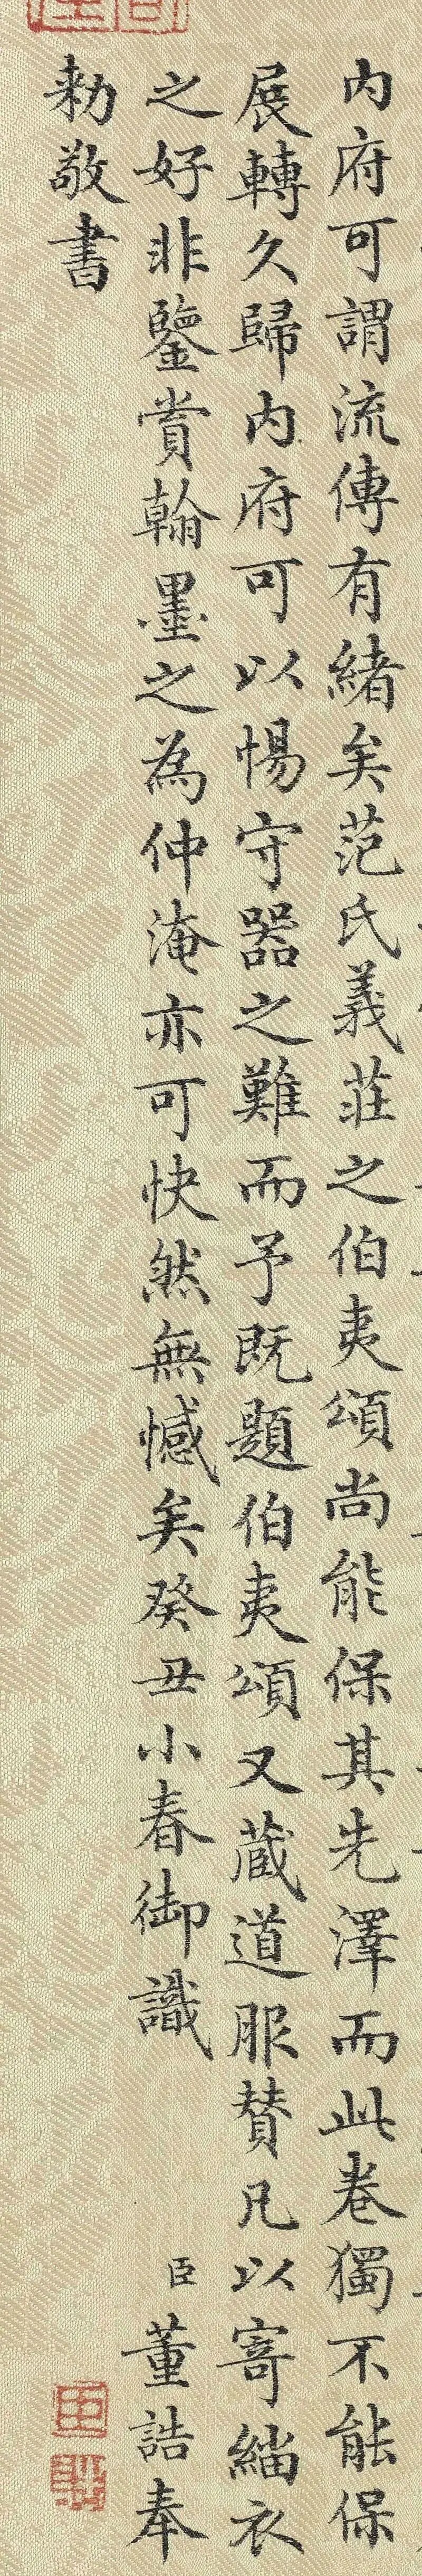 內府可謂流傳有緒矣范氏義莊之伯夷頌尚能保其先澤而此卷獨不能保
展轉久歸內府可以惕守器之難而予既題伯夷頌又藏道服賛凡以寄緇衣
之好非鑒賞翰墨之為仲淹亦可快然無憾矣癸丑小春御識 臣董誥奉
勅敬書